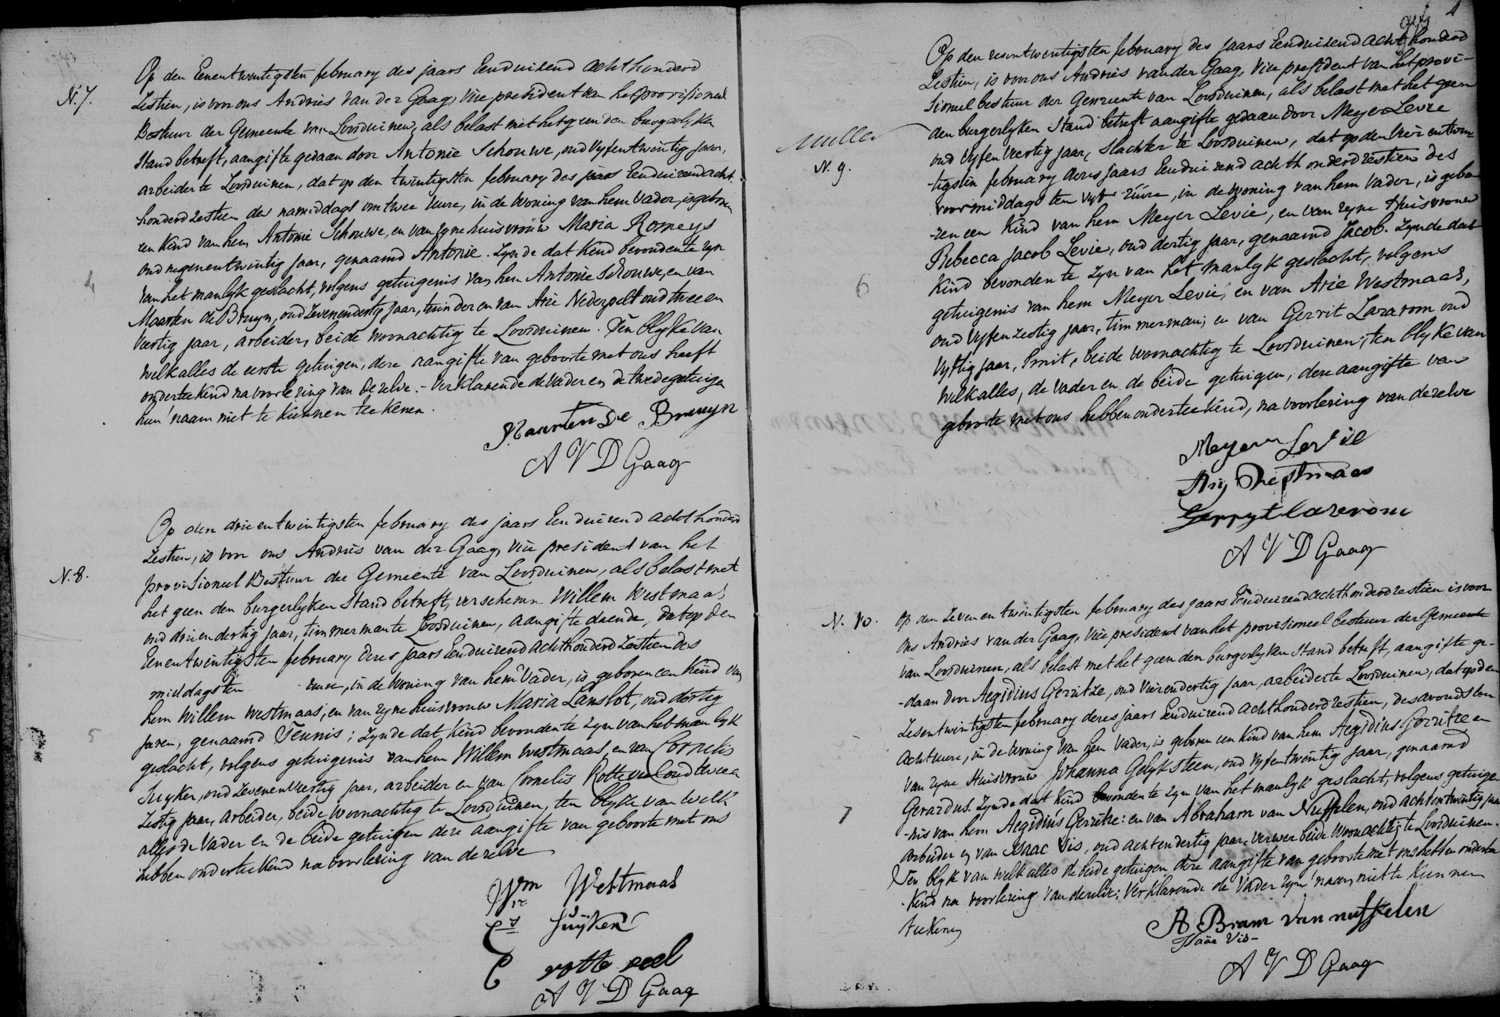 N. 7.
Op den Eenentwintigsten february des jaars Eenduizend achthonderd
Zestien, is voor ons Andries van der Gaag, vice president van het provisioneel
Bestuur der Gemeente van Loosduinen, als belast met het geen den burgerlyken
Stand betreft, aangifte gedaan door Antonie Schouwe, oud vyfentwintig jaar,
arbeider te Loosduinen, dat op den twintigsten february des jaars Eenduizend acht
honderd zestien des namiddags om twee uure, in de woning van hem vader, is geboren
een kind van hem Antonie Schouwe, en van zyne huisvrouw Maria Romeys
oud negenentwintig jaar, genaamd Antonie. Zynde dat kind bevonden te zyn
van het manlyk geslacht, volgens getuigenis van hem Antonie Schouwe, en van
4
Maarten de Bruyn, oud zevenendertig jaar, tuinder en van Arie Nederpelt oud twee en
veertig jaar, arbeider, beide woonachtig te Loosduinen. Ten blyke van
welk alles de eerste getuigen, deze aangifte van geboorte met ons heeft
onderteekend na voorlezing van dezelve. - Verklarende de Vader en de tweede getuige
hun naam niet te kunnen teekenen.
Maarten De Bruuyn
A V D Gaag
N. 8.
Op den drieentwintigsten february des jaars Eenduizend achthonderd
Zestien, is voor ons Andries van der Gaag, vice president van het
provisioneel Bestuur der Gemeente van Loosduinen, als belast met
het geen den burgerlyken Stand betreft, verschenen Willem Westmaas
oud drieendertig jaar, timmerman te Loosduinen, aangifte doende, dat op den
Eenentwintigsten february dezes jaars Eenduizend achthonderd Zestien des
middags ten uure, in de woning van hem Vader, is geboren een kind van
hem Willem Westmaas, en van zyne huisvrouw Maria Lanslot, oud dertig
5
jaren, genaamd Teunis; Zynde dat kind bevonden te zyn van het manlyk
geslacht, volgens getuigenis van hem Willem Westmaas, en van Cornelis
Suyker, oud zevenenveertig jaar, arbeider en van Cornelis Rotteveel oud twee en
Zestig jaar, arbeider, beide woonachtig te Loosduinen, ten blyke van welk
alles de Vader en de beide getuigen deze aangifte van geboorte met ons
hebben onderteekend na voorlezing van dezelve
Wm Westmaas
Cs Suyker
C rotte veel
A V D Gaag
Op den vierentwintigsten february des jaars Eenduizend acht honderd
Zestien, is voor ons Andries van der Gaag, Vice president van het provi-
sioneel bestuur der Gemeente van Loosduinen, als belast met het geen
den burgerlyken Stand betreft aangifte gedaan door Meyer Levie
N. 9.
oud Vyfenveertig jaar, Slachter te Loosduinen, dat op den vier entwin-
tigsten february dezes jaars Eenduizend achthonderd zestien des
voormiddags ten vyf uure, in de woning van hem Vader, is gebo-
ren een Kind van hem Meyer Levie, en van zyne Huisvrouw
Rebecca Jacob Levie, oud dertig jaar, genaamd Jacob. Zynde dat
6
Kind bevonden te zyn van het manlyk geslacht, volgens
getuigenis van hem Meyer Levie, en van Arie Westmaas,
oud Vyfenzestig jaar, timmerman, en van Gerrit Lazarom oud
Vyftig jaar, Smit, beide woonachtig te Loosduinen, ten blyke van
welk alles, de Vader en de beide getuigen, deze aangifte van
geboorte met ons hebben onderteekend, na voorlezing van dezelve
Meyer Levie
Arij Westmaas
Gerryt Lazerom
A V D Gaag
N. 10.
Op den Zevenentwintigsten february des jaars Eenduizend achthonderd zestien is voor
Ons Andries van der Gaag, Vice president van het provisioneel bestuur der Gemeente
van Loosduinen, als belast met het geen den burgerlyken Stand betreft, aangifte ge-
-daan door Aegidius Gerritze, oud Vierendertig jaar, arbeider te Loosduinen, dat op den
Zesentwintigsten february dezes jaars Eenduizend achthonderd zestien, des avonds ten
acht uure, in de woning van hem Vader, is geboren een kind van hem Aegidius Gerritze en
van zyne Huisvrouw Johanna Gelyksteen, oud vyfentwintig jaar, genaamd
7
Gerardus. Zynde dat kind bevonden te zyn van het manlyk geslacht, volgens getuige-
-nis van hem Aegidius Gerritze: en van Abraham van Nuffelen, oud achtentwintig jaar
arbeider en van Isaac Vis, oud achtendertig jaar, verwer beide woonachtig te Loosduinen.
Ten blyk van welk alles de beide getuigen deze aangifte van geboorte met ons hebben ondertee-
-kend na voorlezing van dezelve; Verklarende de Vader zyn naam niet te kunnen
teekenen
A Bram van nuffelen
Isaac Vis
A V D Gaag